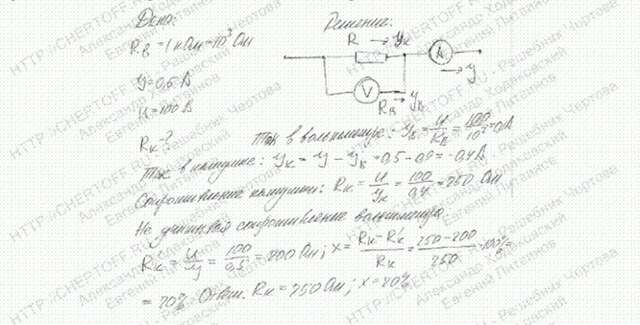 Дано:
Решение:
R_в = 1 кОм = 10³ Ом
R → I_к
A
→ I
V
R_в → I_в
I = 0,5 А
U = 100 В
R_к - ?
Ток в вольтметре: I_в = U/R_в = 100/10³ = 0,1 А
Ток в катушке: I_к = I − I_в = 0,5 − 0,1 = 0,4 А
Сопротивление катушки: R_к = U/I_к = 100/0,4 = 250 Ом
Не учитывая сопротивление вольтметра
R'_к = U/I = 100/0,5 = 200 Ом; X = (R_к − R'_к)/R_к = (250 − 200)/250 · 100% =
= 20% Ответ. R_к = 250 Ом; x = 20%
HTTP://CHERTOFF.RU - Решебник Чертова
Александр Ходяковский
Евгений Питалнов